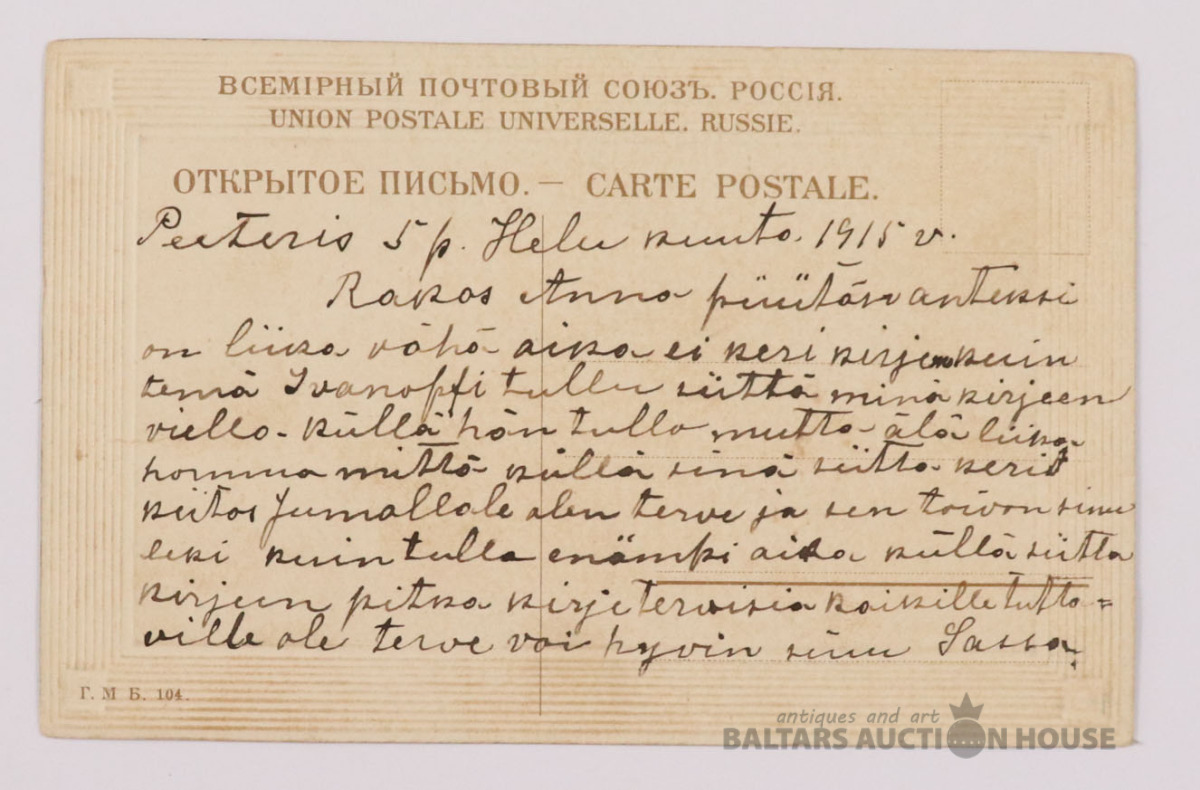 ВСЕМІРНЫЙ ПОЧТОВЫЙ СОЮЗЪ. РОССІЯ.
UNION POSTALE UNIVERSELLE. RUSSIE.
ОТКРЫТОЕ ПИСЬМО. — CARTE POSTALE.
Peeteris 5 p. Helu kuuta. 1915 v.
Rakas Anna püütän anteksi
on liika vähä aika ei keri kirje kuin
temä Ivanoffi tullu siittä minä kirjeen
viello. küllä hän tullo mutta älä liika
homma mittä küllä sinä siitta kerit
kiitos Jumallale olen terve ja sen toivon sinu
leki kuin tulla enämpi aika küllä siitta
kirjeen pitka kirje terveisia kaikille tutta=
ville ole terve voi hyvin sinu Sassa.
Г. М Б. 104.
antiques and art
BALTARS AUCTION HOUSE